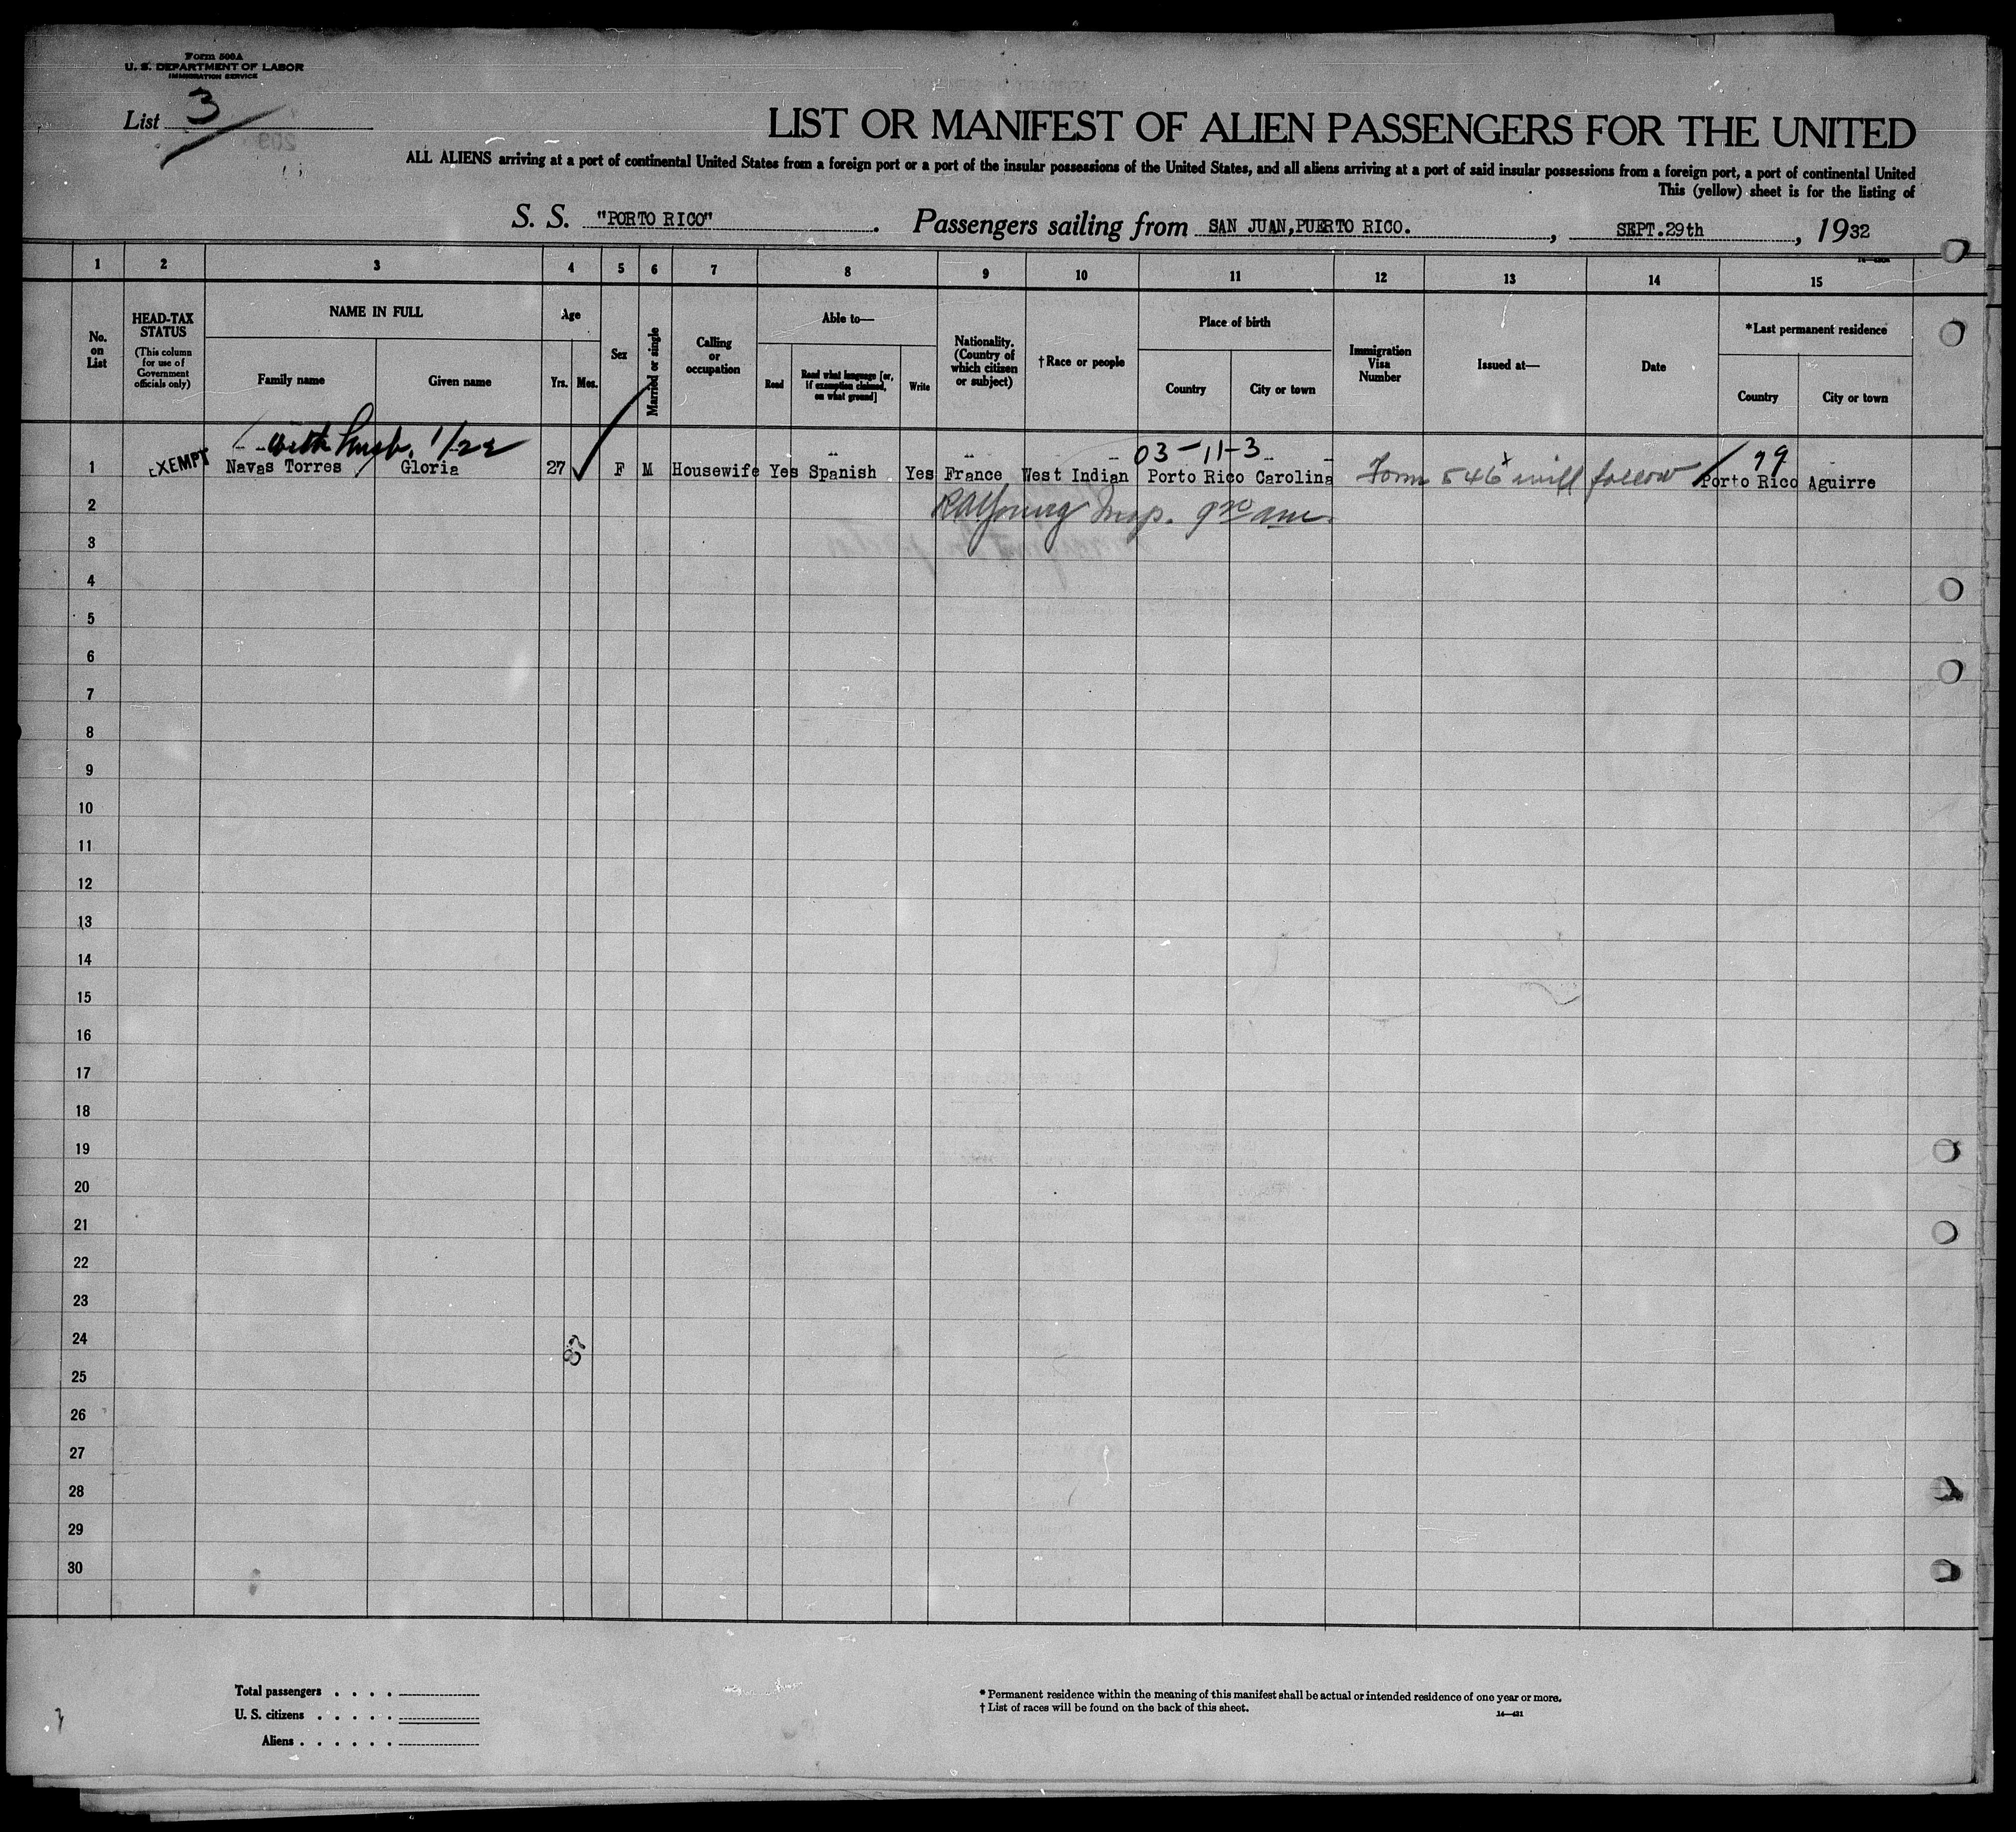 Form 500A
U. S. DEPARTMENT OF LABOR
IMMIGRATION SERVICE
List 3
LIST OR MANIFEST OF ALIEN PASSENGERS FOR THE UNITED
ALL ALIENS arriving at a port of continental United States from a foreign port or a port of the insular possessions of the United States, and all aliens arriving at a port of said insular possessions from a foreign port, a port of continental United
This (yellow) sheet is for the listing of
S. S. "PORTO RICO". Passengers sailing from SAN JUAN, PUERTO RICO., SEPT.29th, 1932
1 2 3 4 5 6 7 8 9 10 11 12 13 14 15
No. on List
HEAD-TAX STATUS
(This column for use of Government officials only)
NAME IN FULL
Family name
Given name
Age
Yrs.
Mos.
Sex
Married or single
Calling or occupation
Able to—
Read
Read what language [or, if exemption claimed, on what ground]
Write
Nationality. (Country of which citizen or subject)
†Race or people
Place of birth
Country
City or town
Immigration Visa Number
Issued at—
Date
*Last permanent residence
Country
City or town
with husb. 1/22
03-11-3
99
1 EXEMPT Navas Torres Gloria 27 F M Housewife Yes Spanish Yes France West Indian Porto Rico Carolina Form 546 will follow Porto Rico Aguirre
2
3
4
5
6
7
8
9
10
11
12
13
14
15
16
17
18
19
20
21
22
23
24
25
26
27
28
29
30
Total passengers . . . .
U. S. citizens . . . . .
Aliens . . . . . .
* Permanent residence within the meaning of this manifest shall be actual or intended residence of one year or more.
† List of races will be found on the back of this sheet.
14—431